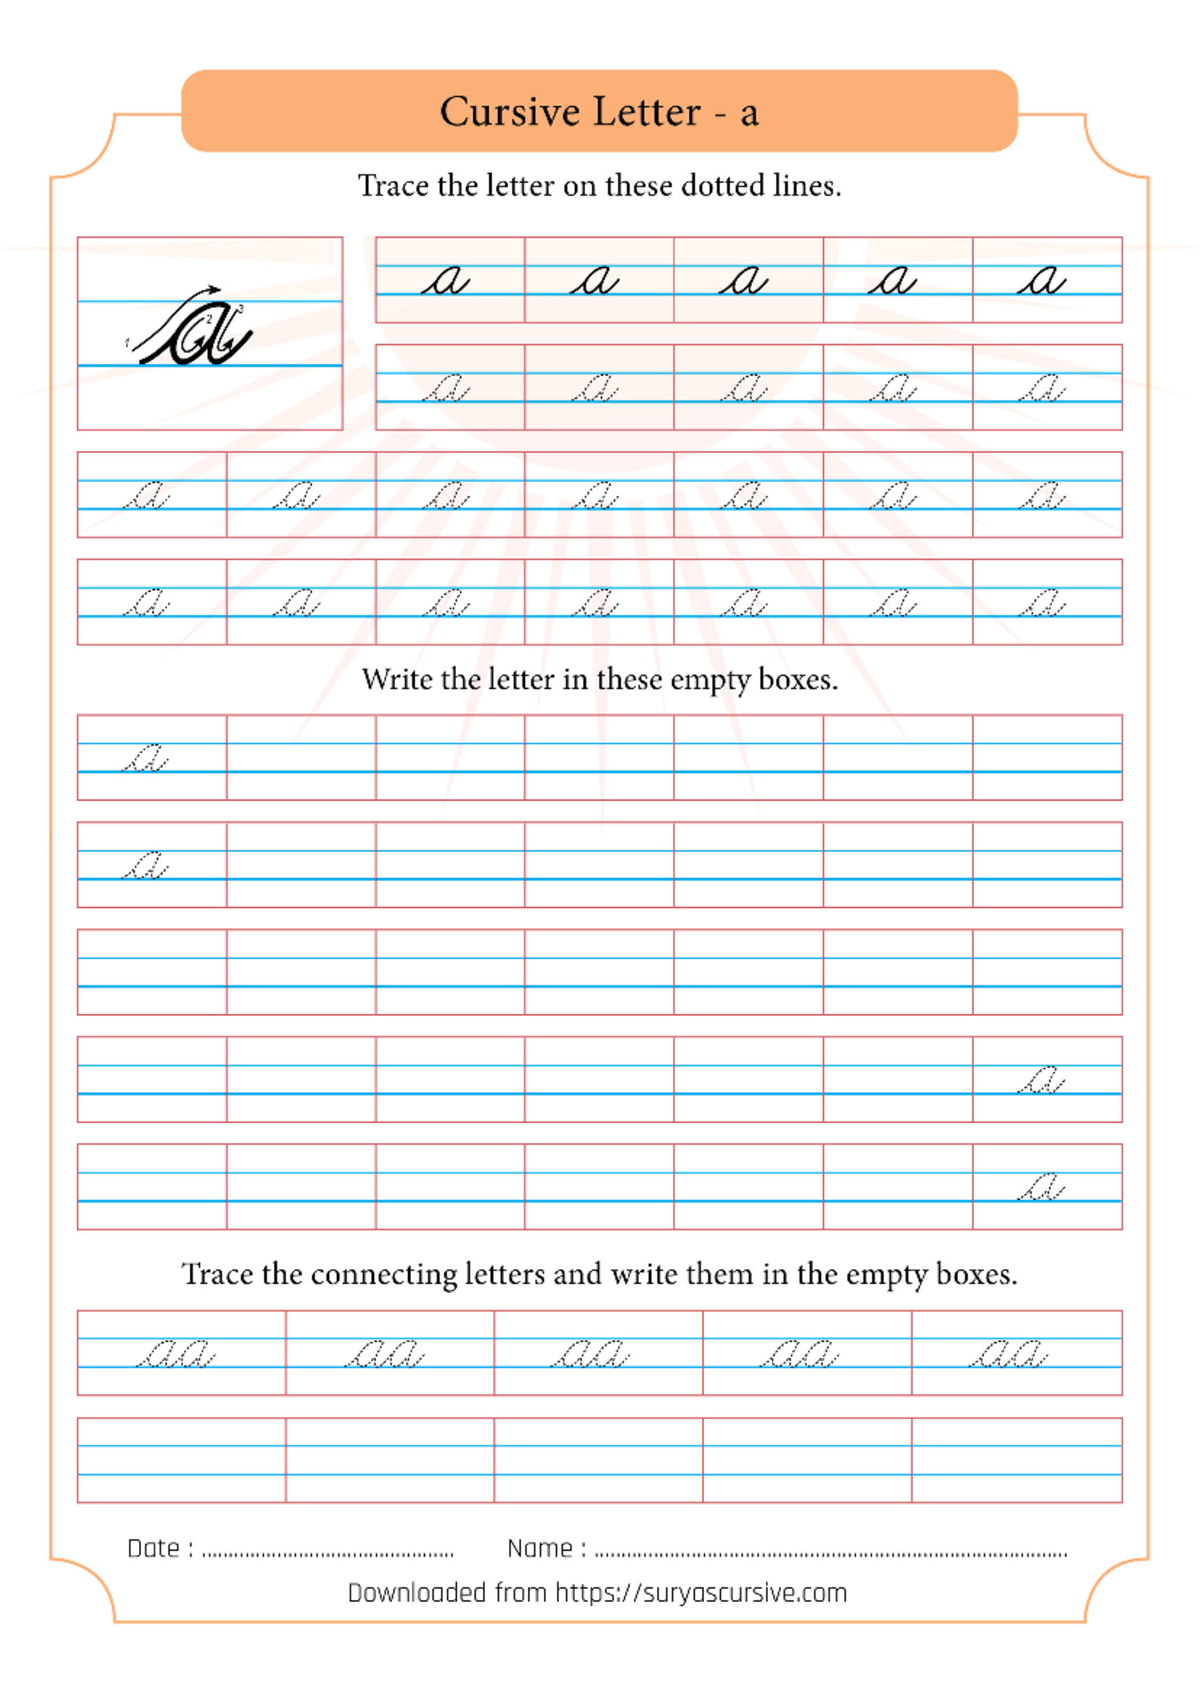 Cursive Letter - a
Trace the letter on these dotted lines.
1 2 3 a
a a a a a
a a a a a
a a a a a a a
a a a a a a a
Write the letter in these empty boxes.
a
a
a
a
Trace the connecting letters and write them in the empty boxes.
aa aa aa aa aa
Date : ............................................... Name : ........................................................................................
Downloaded from https://suryascursive.com